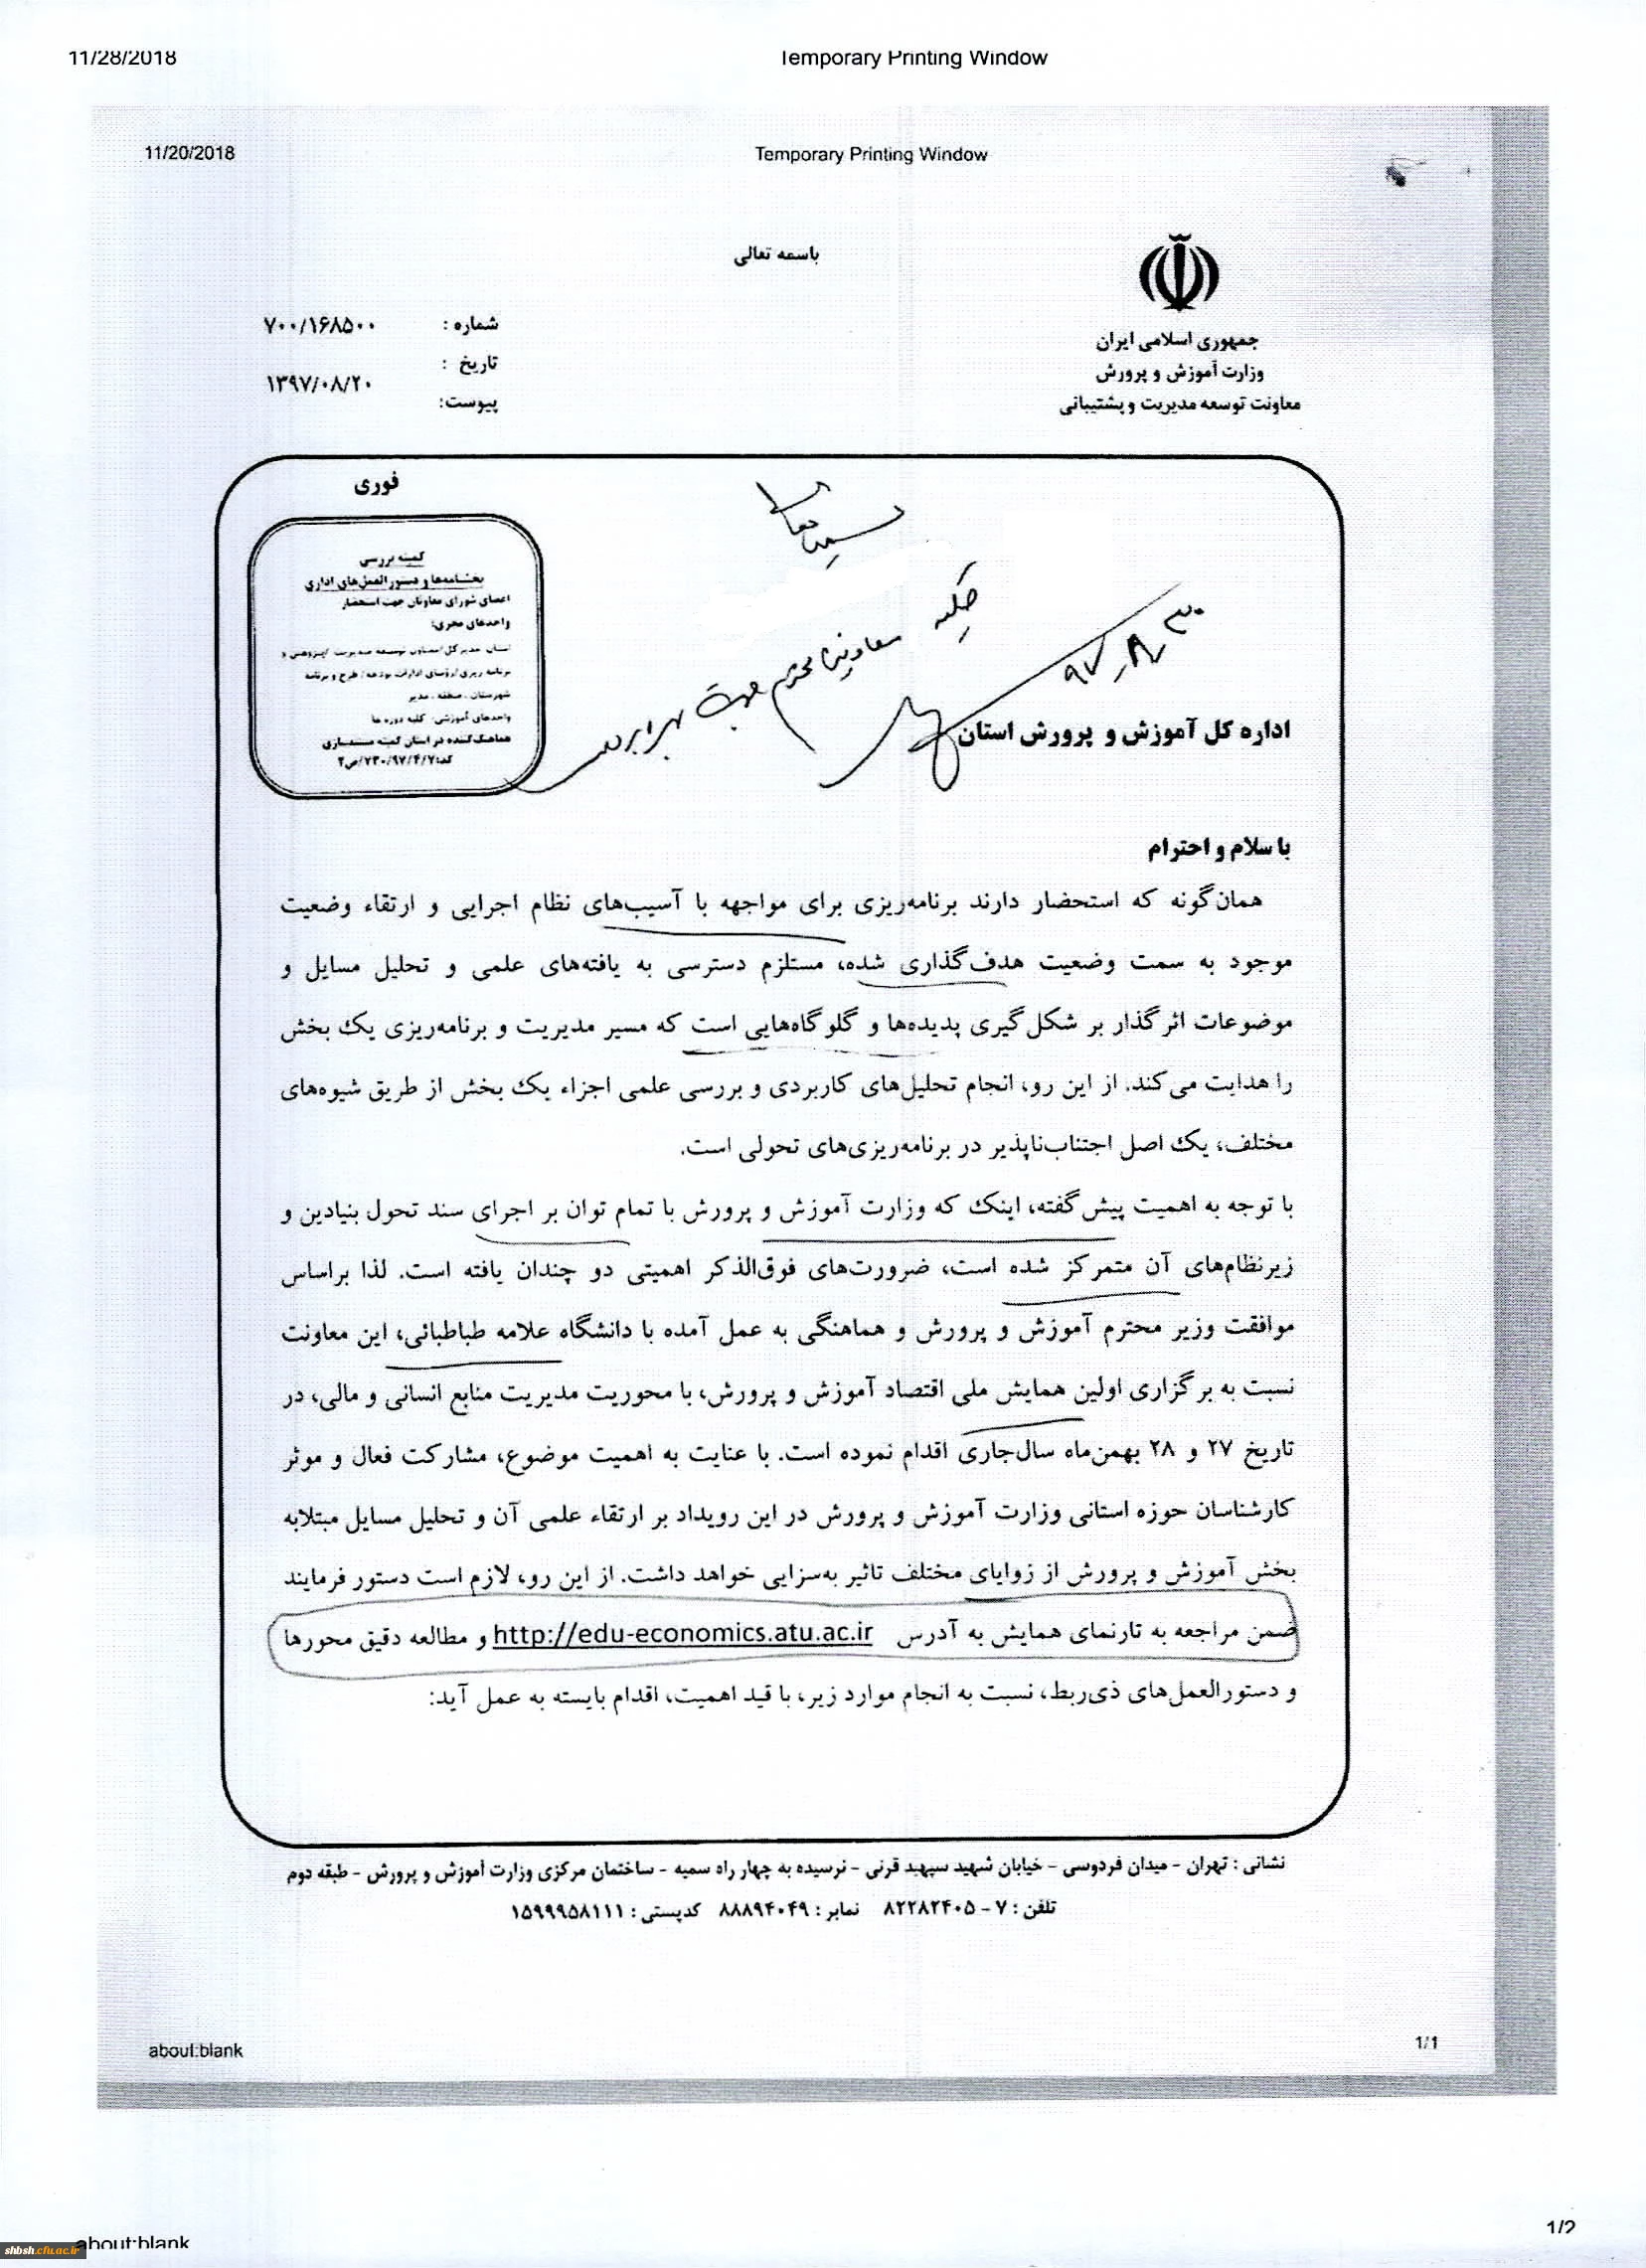 11/28/2018
Temporary Printing Window
11/20/2018
Temporary Printing Window
باسمه تعالی
جمهوری اسلامی ایران
وزارت آموزش و پرورش
معاونت توسعه مدیریت و پشتیبانی
شماره : ۷۰۰/۱۶۸۵۰۰
تاریخ : ۱۳۹۷/۰۸/۲۰
پیوست:
فوری
کمیته بررسی
بخشنامه‌ها و دستورالعمل‌های اداری
اعضای شورای معاونان جهت استحضار
واحدهای مجری:
استان مدیرکل/معاون توسعه مدیریت /پژوهش و
برنامه ریزی/رؤسای ادارات بودجه/ طرح و برنامه
شهرستان ، منطقه ، مدیر
واحدهای آموزشی- کلیه دوره ها
هماهنگ‌کننده در استان کمیته مستندسازی
کلیه معاونین محترم جهت
۹۷-۸-۳۰
اداره کل آموزش و پرورش استان
با سلام و احترام
همان‌گونه که استحضار دارند برنامه‌ریزی برای مواجهه با آسیب‌های نظام اجرایی و ارتقاء وضعیت
موجود به سمت وضعیت هدف‌گذاری شده، مستلزم دسترسی به یافته‌های علمی و تحلیل مسایل و
موضوعات اثرگذار بر شکل‌گیری پدیده‌ها و گلوگاه‌هایی است که مسیر مدیریت و برنامه‌ریزی یک بخش
را هدایت می‌کند. از این رو، انجام تحلیل‌های کاربردی و بررسی علمی اجزاء یک بخش از طریق شیوه‌های
مختلف، یک اصل اجتناب‌ناپذیر در برنامه‌ریزی‌های تحولی است.
با توجه به اهمیت پیش‌گفته، اینک که وزارت آموزش و پرورش با تمام توان بر اجرای سند تحول بنیادین و
زیرنظام‌های آن متمرکز شده است، ضرورت‌های فوق‌الذکر اهمیتی دو چندان یافته است. لذا براساس
موافقت وزیر محترم آموزش و پرورش و هماهنگی به عمل آمده با دانشگاه علامه طباطبائی، این معاونت
نسبت به برگزاری اولین همایش ملی اقتصاد آموزش و پرورش، با محوریت مدیریت منابع انسانی و مالی، در
تاریخ ۲۷ و ۲۸ بهمن‌ماه سال‌جاری اقدام نموده است. با عنایت به اهمیت موضوع، مشارکت فعال و موثر
کارشناسان حوزه استانی وزارت آموزش و پرورش در این رویداد بر ارتقاء علمی آن و تحلیل مسایل مبتلابه
بخش آموزش و پرورش از زوایای مختلف تاثیر به‌سزایی خواهد داشت. از این رو، لازم است دستور فرمایند
ضمن مراجعه به تارنمای همایش به آدرس http://edu-economics.atu.ac.ir و مطالعه دقیق محورها
و دستورالعمل‌های ذی‌ربط، نسبت به انجام موارد زیر، با قید اهمیت، اقدام بایسته به عمل آید:
نشانی : تهران - میدان فردوسی - خیابان شهید سپهبد قرنی - نرسیده به چهار راه سمیه - ساختمان مرکزی وزارت آموزش و پرورش - طبقه دوم
تلفن : ۷ - ۸۲۲۸۲۴۰۵ نمابر : ۸۸۸۹۴۰۴۹ کدپستی : ۱۵۹۹۹۵۸۱۱۱
about:blank
1/1
about:blank
1/2
shbsh.cfu.ac.ir